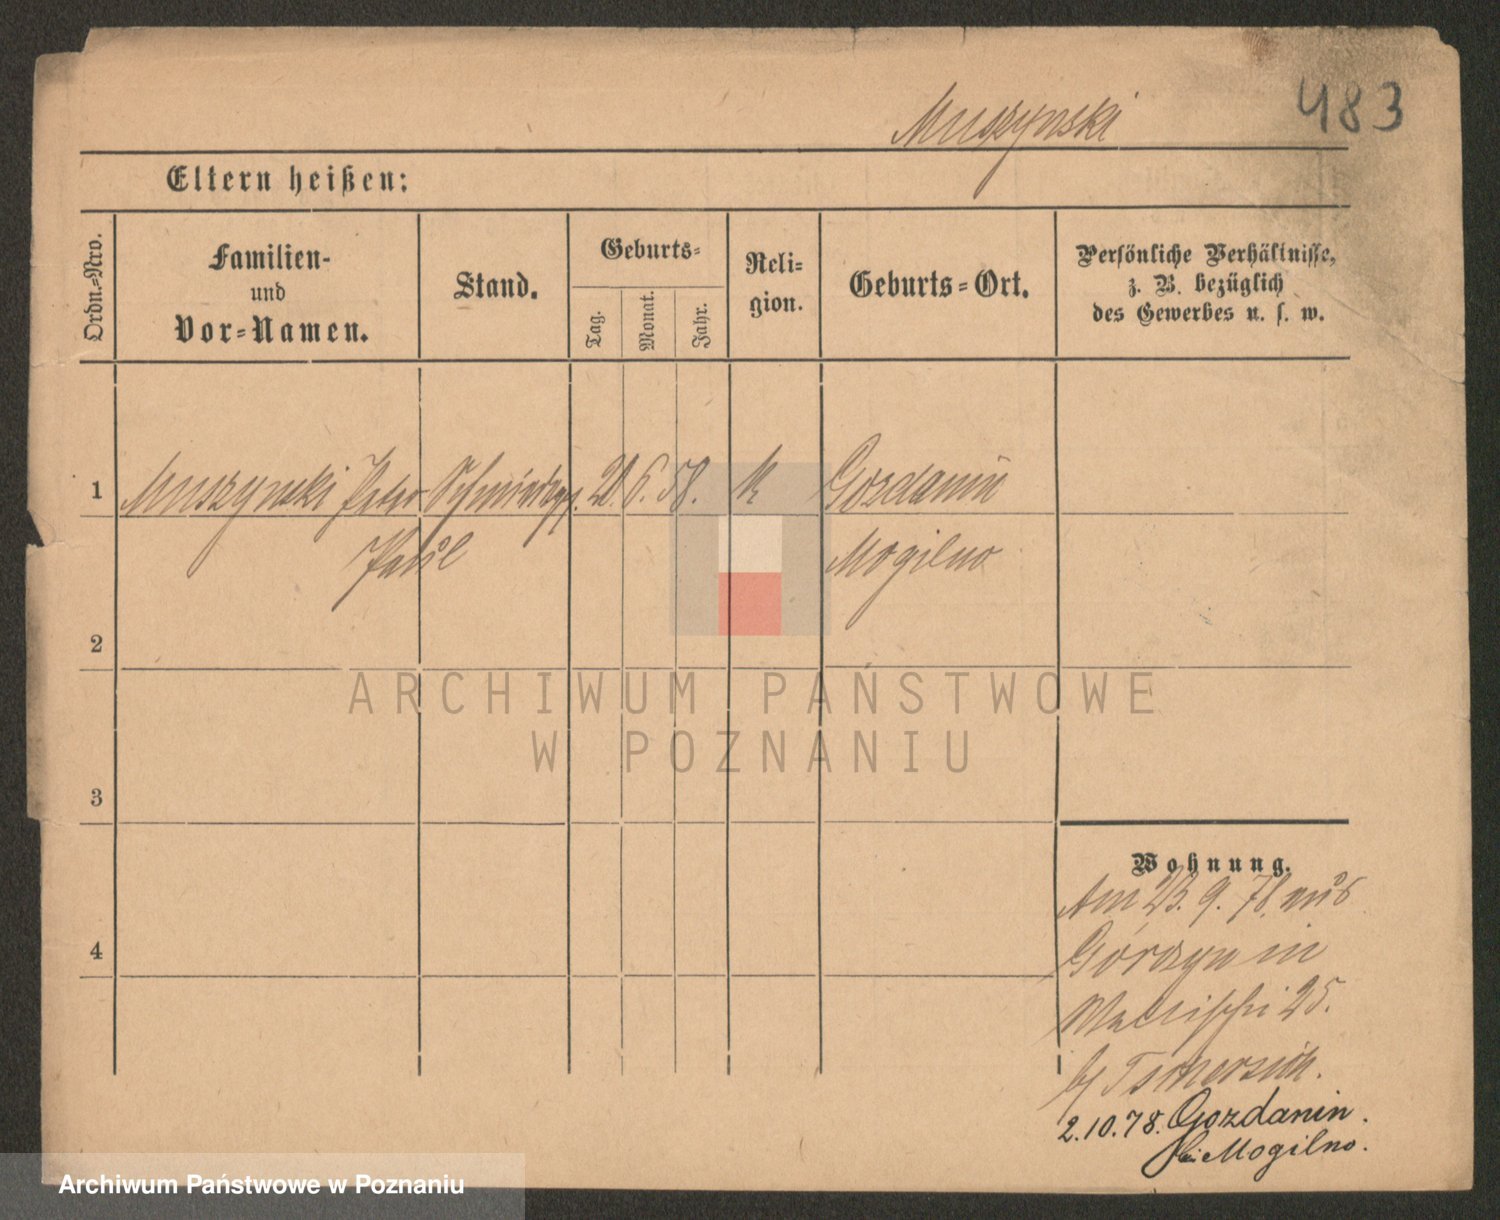 Muszynski 483
Eltern heißen:
Ordn.-Nro.
Familien-
und
Vor-Namen.
Stand.
Geburts-
Tag.
Monat.
Jahr.
Reli-
gion.
Geburts-Ort.
Persönliche Verhältnisse,
z. B. bezüglich
des Gewerbes u. s. w.
1 Muszynski Peter Schmiedeg. 20. 6. 58. k Gozdanin
Paul Mogilno
2
3
4
Wohnung.
Am 23. 9. 78. aus
Górczyn in
Wallischei 25.
2.10.78. Gozdanin.
bei Mogilno.
ARCHIWUM PAŃSTWOWE
W POZNANIU
Archiwum Państwowe w Poznaniu